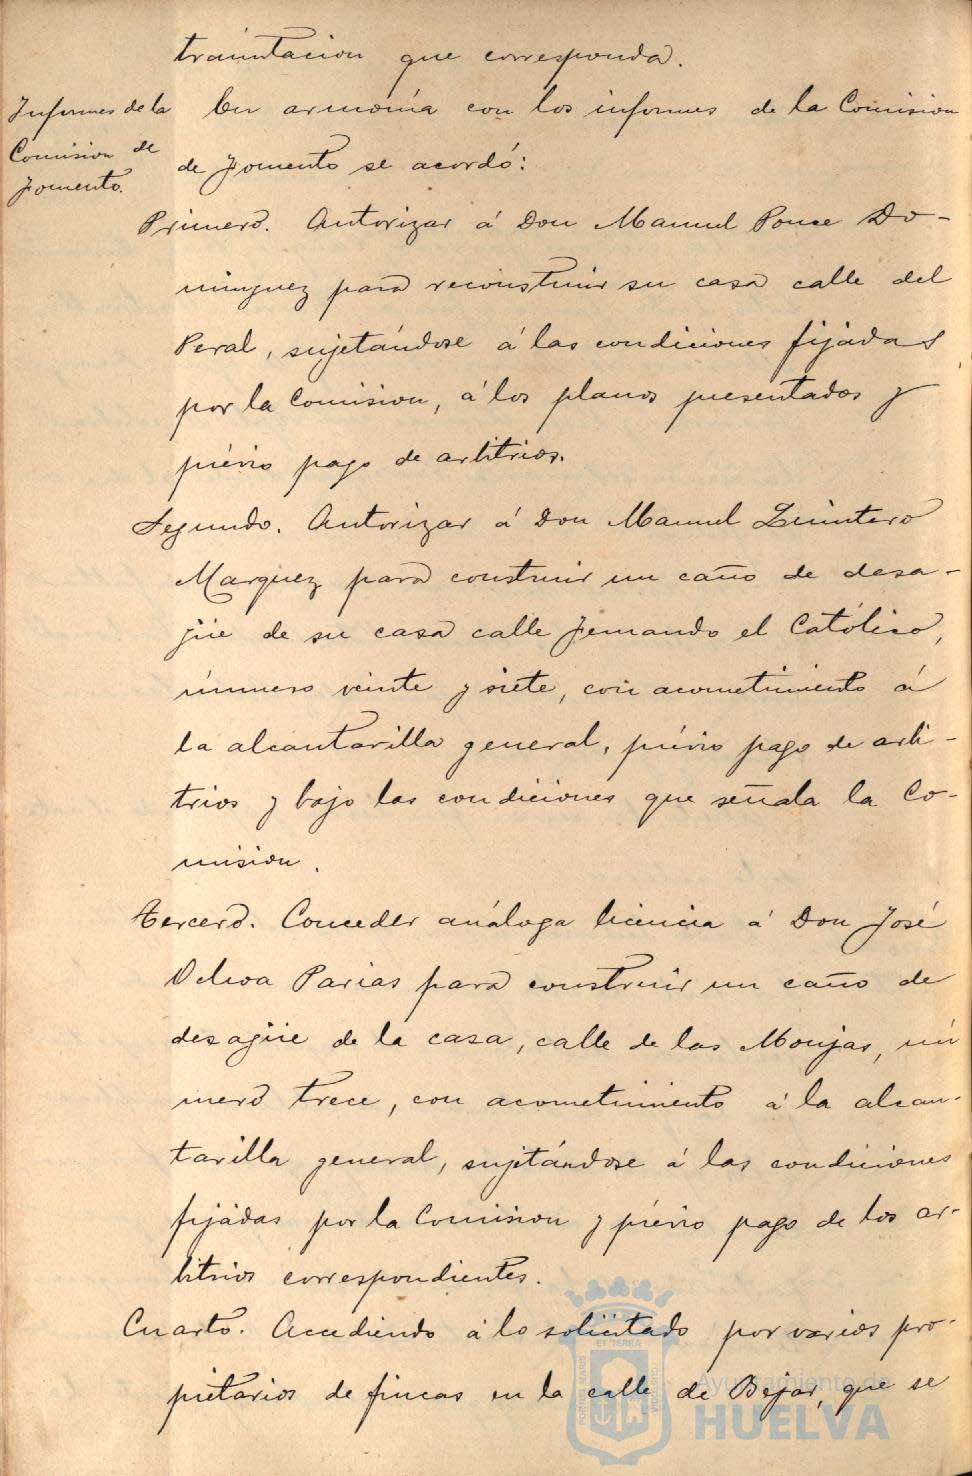 tramitacion que corresponda.
Informes de la
Comision de
Fomento.
En armonía con los informes de la Comision
de Fomento se acordó:
Primero. Autorizar á Don Manuel Ponce Do-
minguez para reconstruir su casa calle del
Peral, sujetándose á las condiciones fijadas
por la Comision, á los planos presentados y
prévio pago de arbitrios.
Segundo. Autorizar á Don Manuel Quintero
Marquez para construir un caño de desa-
güe de su casa calle Fernando el Católico,
número veinte y siete, con acometimiento á
la alcantarilla general, prévio pago de arbi-
trios y bajo las condiciones que señala la Co-
mision.
Tercero. Conceder análoga licencia á Don José
Oliva Parias para construir un caño de
desagüe de la casa, calle de las Monjas, nú
mero trece, con acometimiento á la alcan-
tarilla general, sujetándose á las condiciones
fijadas por la Comision y prévio pago de los ar-
bitrios correspondientes.
Cuarto. Accediendo á lo solicitado por varios pro-
pietarios de fincas en la calle de Bejar, que se
Ayuntamiento de
HUELVA